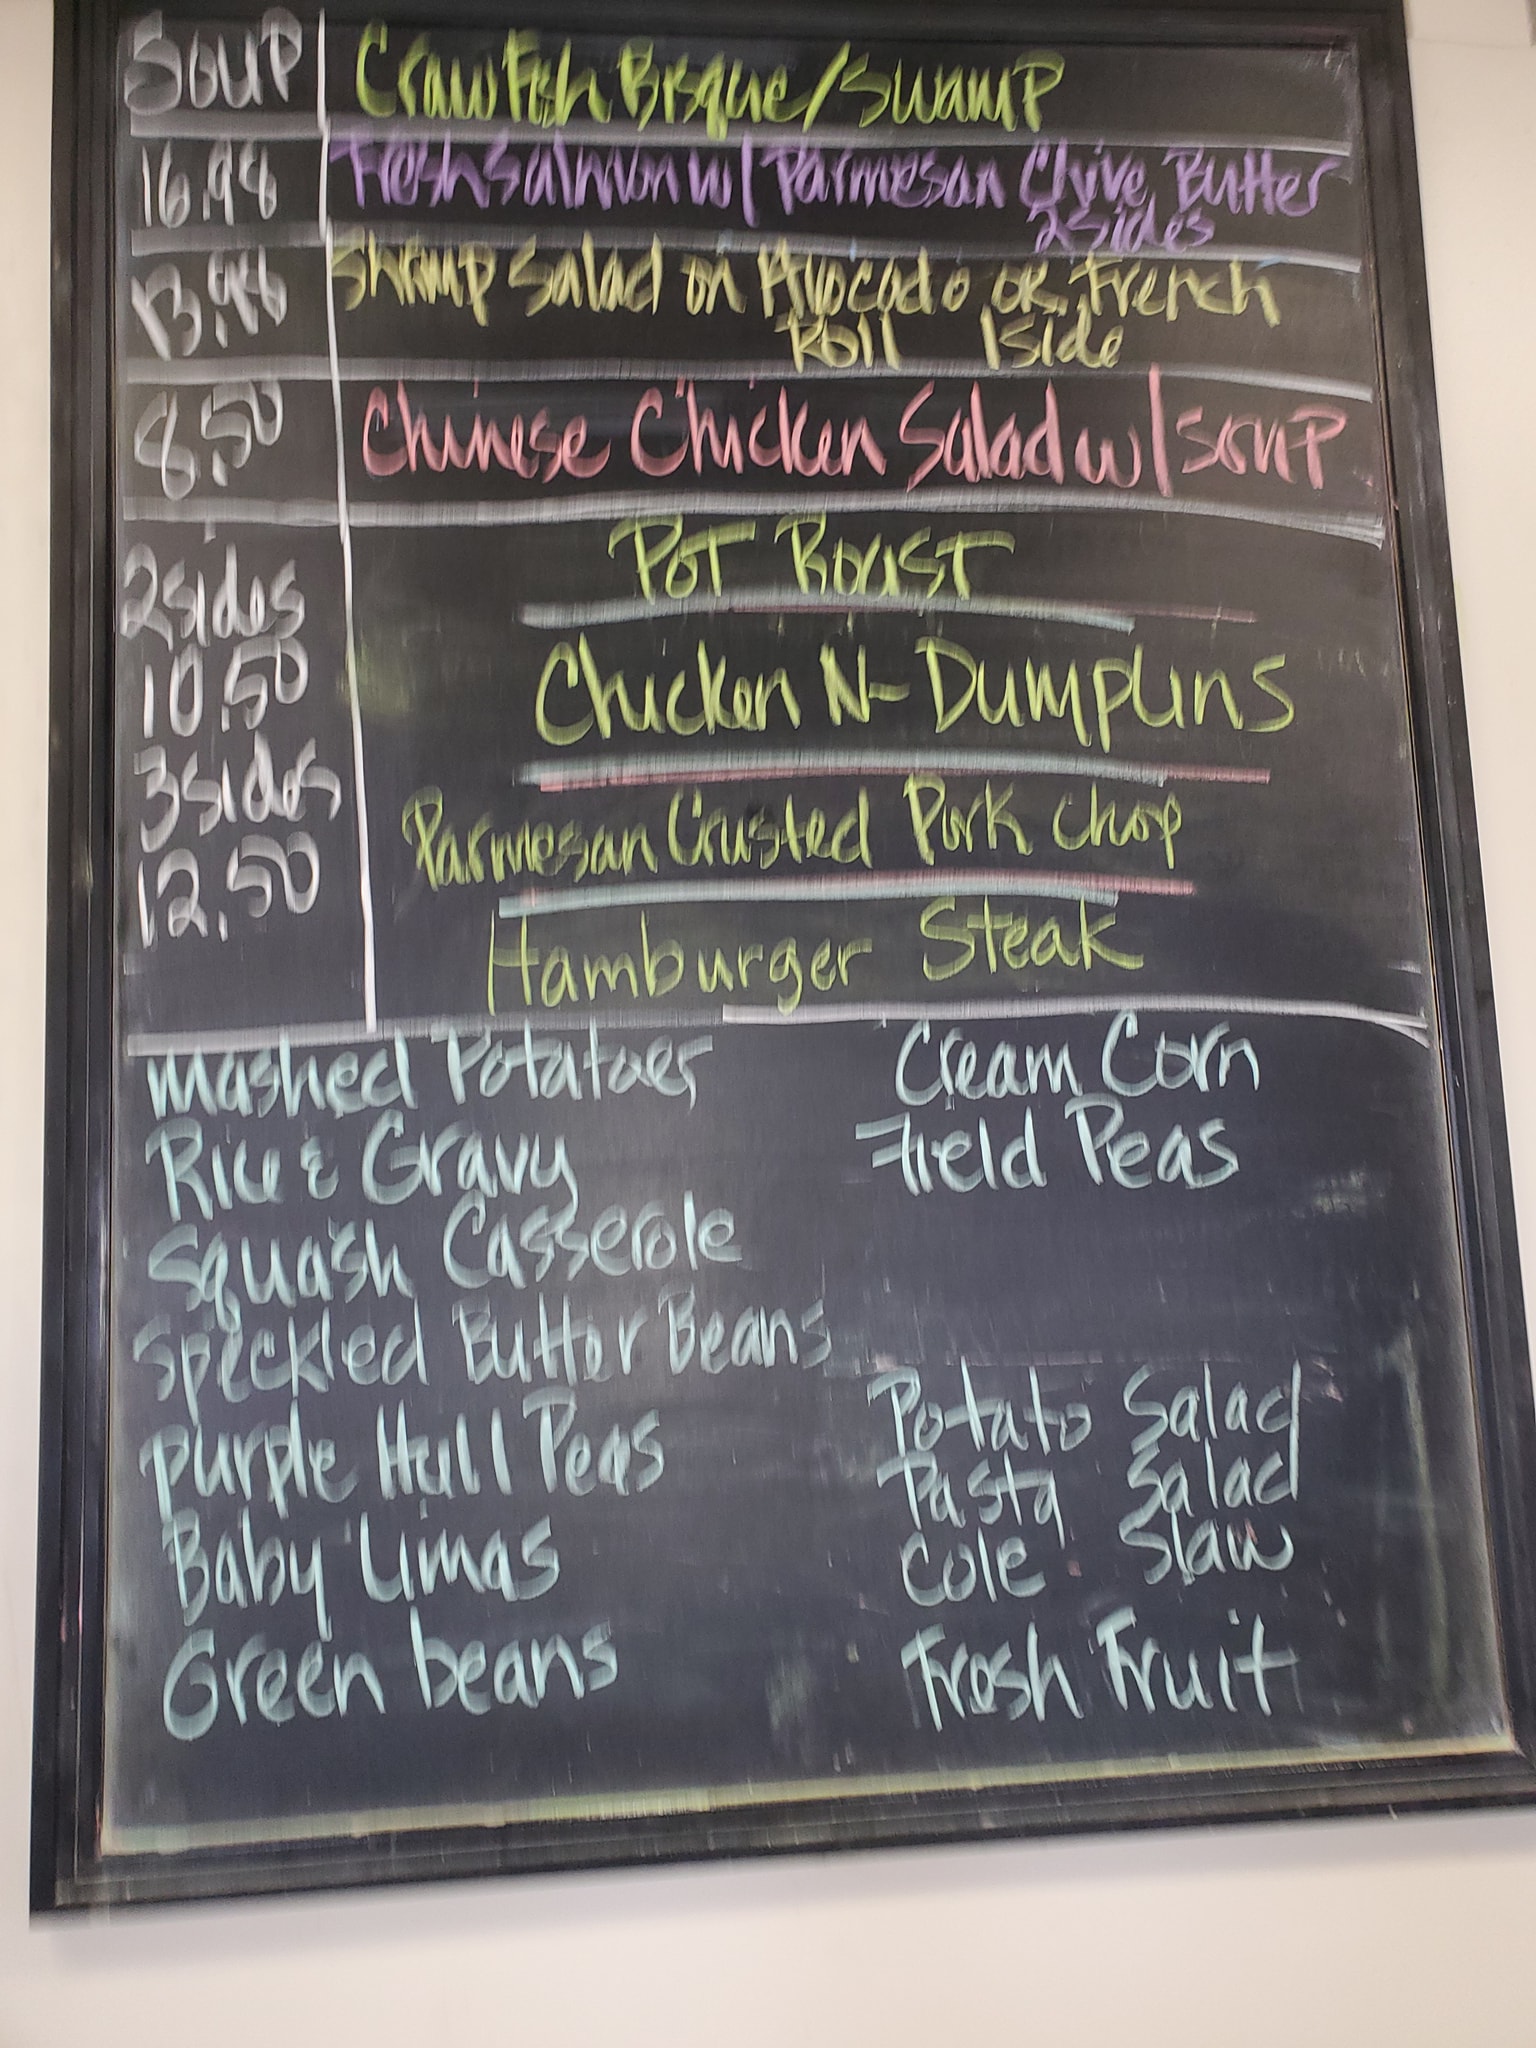 Soup Crawfish Bisque/Swamp
16.98 Fresh Salmon w/ Parmesan Chive Butter
2 sides
13.98 Shrimp Salad on Avocado or French
Roll 1 side
8.50 Chinese Chicken Salad w/ soup
Pot Roast
2 sides
10.50 Chicken N- Dumplins
3 sides Parmesan Crusted Pork Chop
12.50
Hamburger Steak
Mashed Potatoes Cream Corn
Rice & Gravy Field Peas
Squash Casserole
Speckled Butter Beans
Purple Hull Peas Potato Salad
Pasta Salad
Baby Limas Cole Slaw
Green beans Fresh Fruit